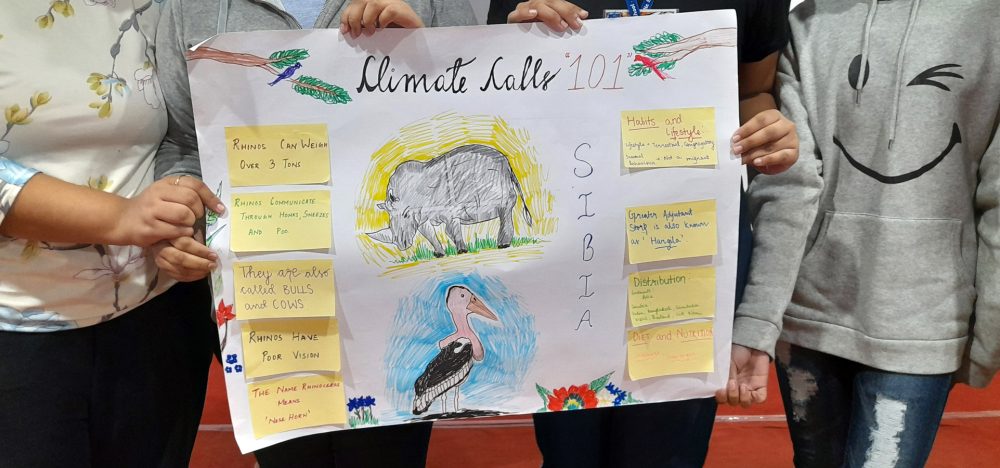 Climate Calls "101"
RHINOS CAN WEIGH
OVER 3 TONS
RHINOS COMMUNICATE
THROUGH HONKS, SNEEZES
AND POO.
They are also
called BULLS
and COWS
RHINOS HAVE
POOR VISION
THE NAME RHINOCEROS
MEANS
'NOSE HORN'
SIBIA
Habits and
Lifestyle:
Lifestyle - Terrestrial, Congregatory
Seasonal
Behaviour - Not a migrant
Greater Adjutant
Stork is also known
as 'Hargila'
Distribution:
DIET and NUTRITION